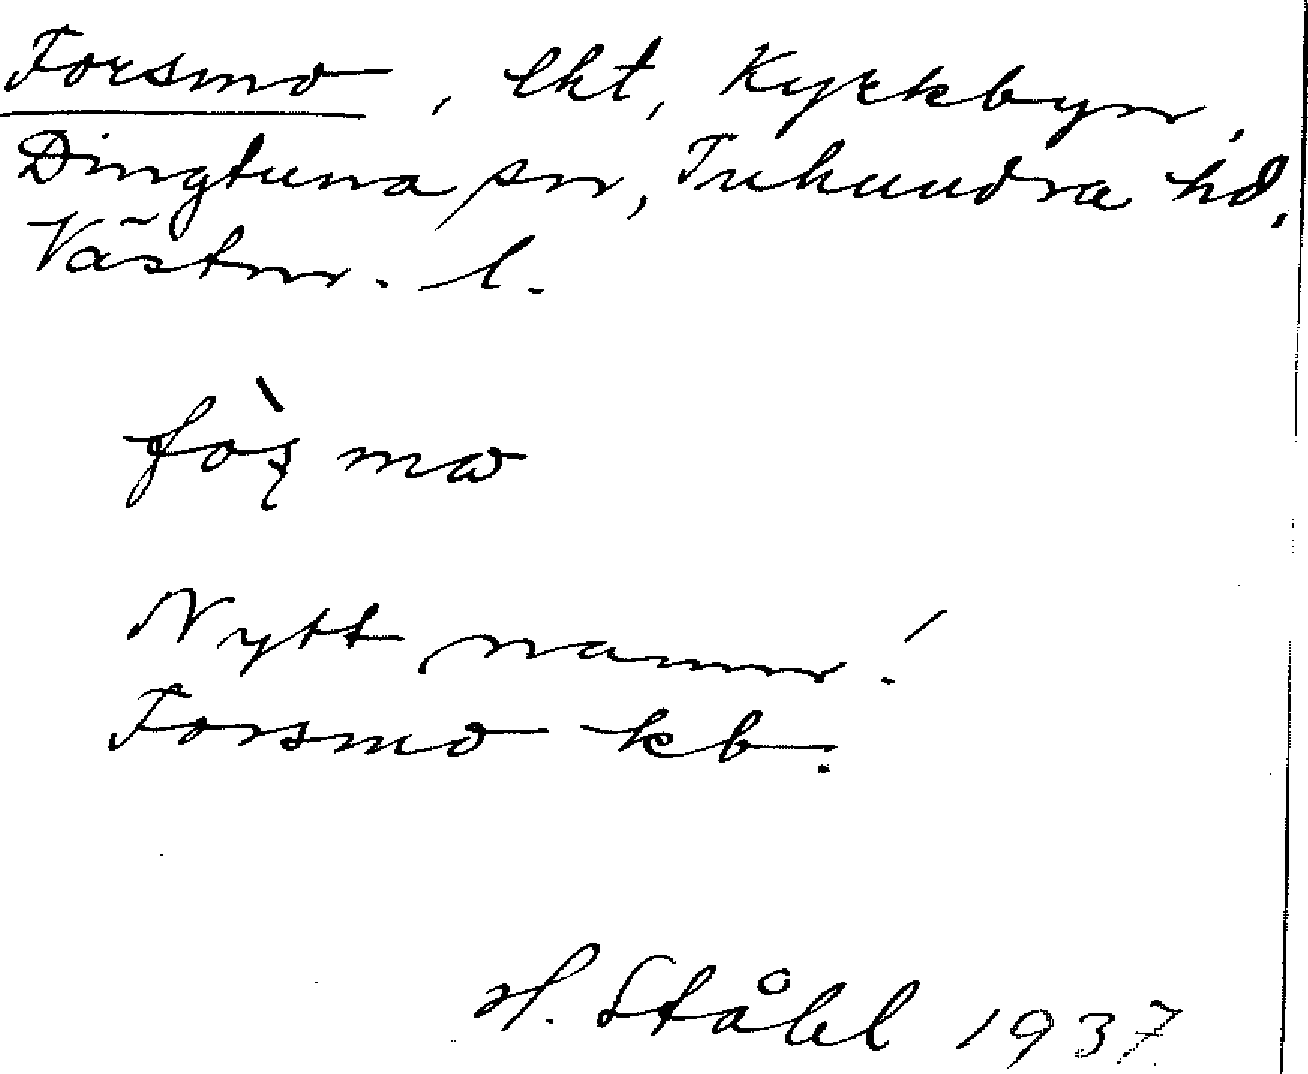 Forsmo, lht, Kyrkbyn,
Dingtuna sn, Tuhundra hd,
Västm. l.
Nytt namn!
Forsmo kb.
H. Ståhl 1937